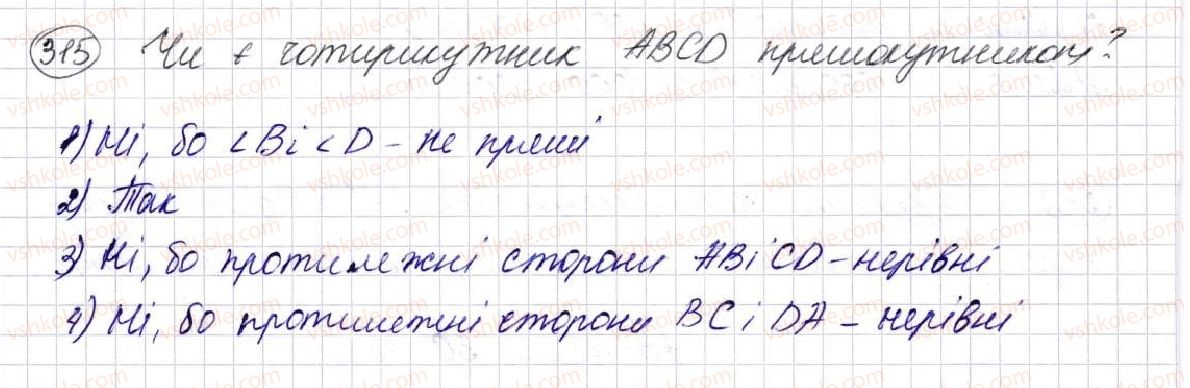 315 Чи є чотирикутник ABCD прямокутником?
1) Ні, бо <B і <D - не прямі
2) Так
3) Ні, бо протилежні сторони AB і CD - нерівні
4) Ні, бо протилежні сторони BC і DA - нерівні